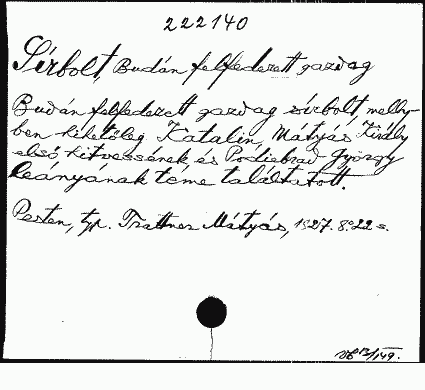 222140
Sírbolt, Budán felfedezett gazdag
Budán felfedezett gazdag sírbolt, melly-
ben hihetőleg Katalin, Mátyás Király
első hitvessének, és Podiebrad György
leányának teme találtatott.
Pesten, typ. Trattner Mátyás, 1827. 8° 22 s.